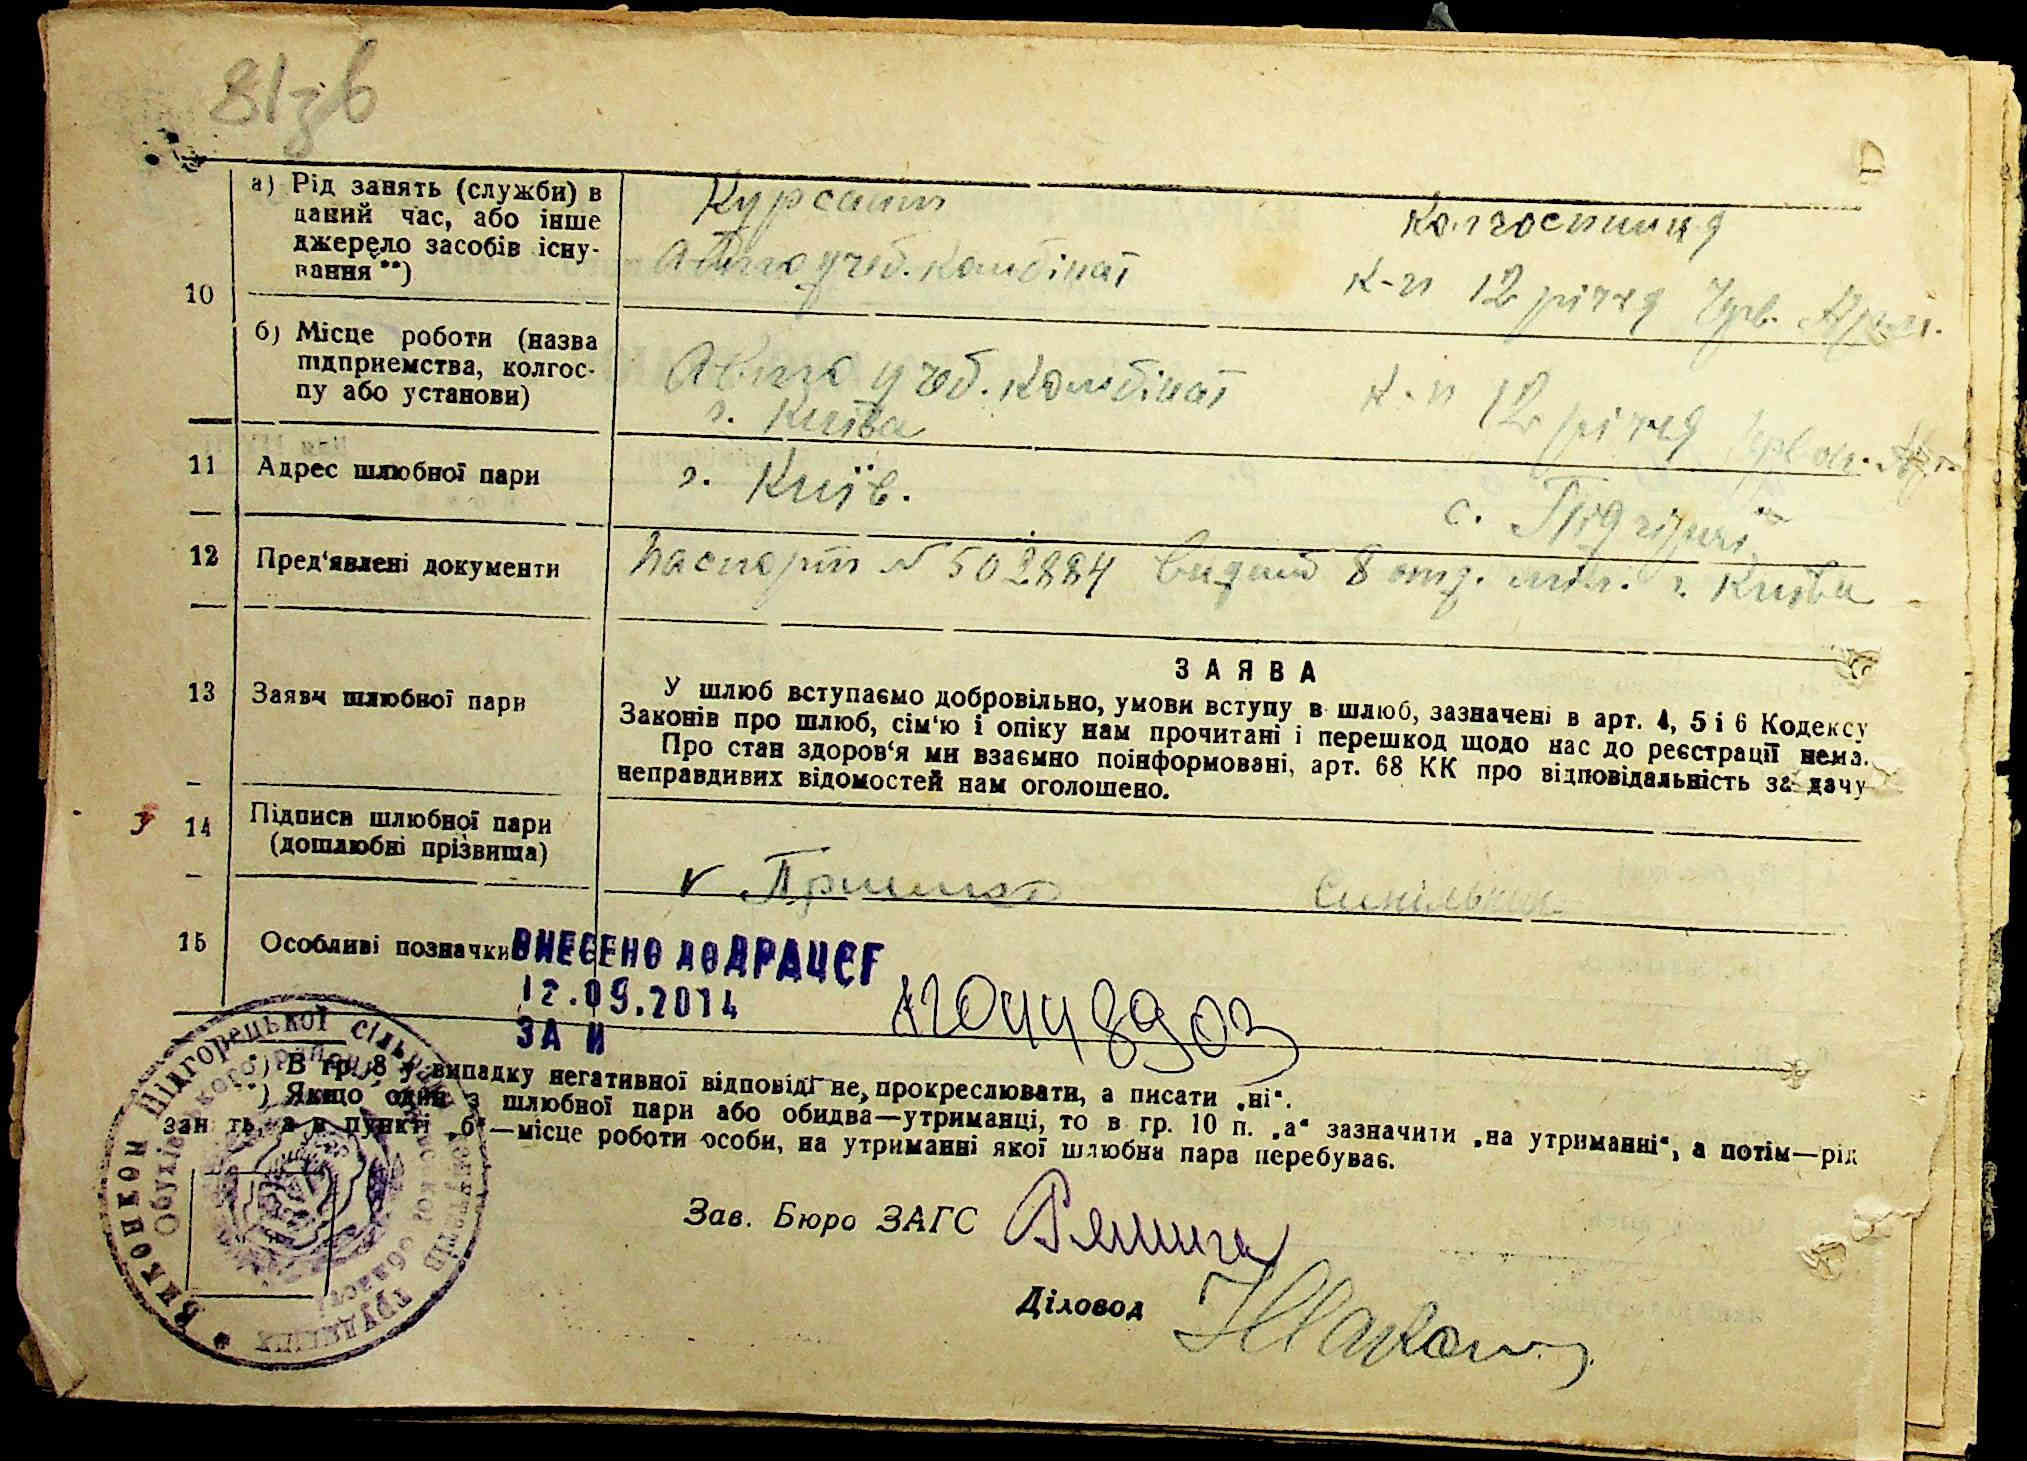 81зв
10
а) Рід занять (служби) в
даний час, або інше
джерело засобів існу-
вання**)
Курсант
Авто учеб. комбінат
колгоспниця
к-п 12 річчя Чрв. Арм.
б) Місце роботи (назва
підприємства, колгос-
пу або установи)
Авто учеб. комбінат
г. Київа
к-п 12 річчя
11
Адрес шлюбної пари
г. Київ.
с. Підгірці
12
Пред'явлені документи
Паспорт № 502884 видний 8 отд. міл. г. Київа
13
Заява шлюбної пари
ЗАЯВА
У шлюб вступаємо добровільно, умови вступу в шлюб, зазначені в арт. 4, 5 і 6 Кодексу
Законів про шлюб, сім'ю і опіку нам прочитані і перешкод щодо нас до реєстрації нема.
Про стан здоров'я ми взаємно поінформовані, арт. 68 КК про відповідальність за дачу
неправдивих відомостей нам оголошено.
14
Підписи шлюбної пари
(дошлюбні прізвища)
15
Особливі позначки
ВНЕСЕНО ДО ДРАЦСГ
12.09.2014
ЗА №
*) В гр. 8 у випадку негативної відповіді не прокреслювати, а писати „ні“.
**) Якщо один з шлюбної пари або обидва—утриманці, то в гр. 10 п. „а“ зазначити „на утриманні“, а потім—рід
занять, а в пункті „б“—місце роботи особи, на утриманні якої шлюбна пара перебуває.
Виконком Підгорецької сільради депутатів трудящих
Обухівського району Київської області
Зав. Бюро ЗАГС
Діловод